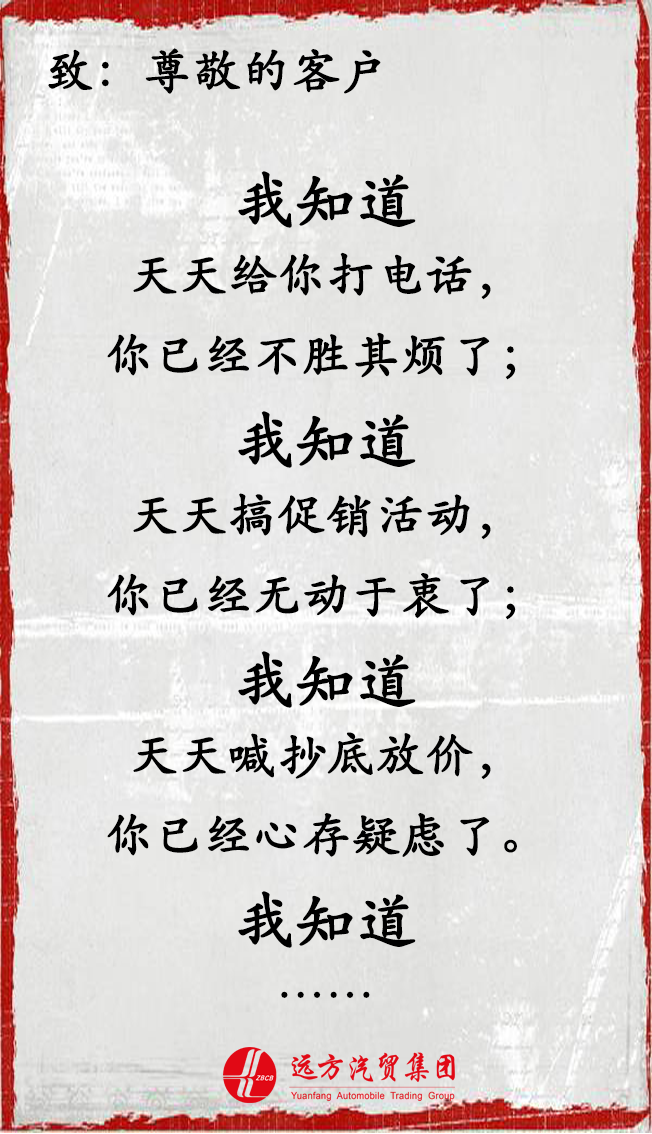 致：尊敬的客户
我知道
天天给你打电话，
你已经不胜其烦了；
我知道
天天搞促销活动，
你已经无动于衷了；
我知道
天天喊抄底放价，
你已经心存疑虑了。
我知道
······
ZBCB
远方汽贸集团
Yuanfang Automobile Trading Group